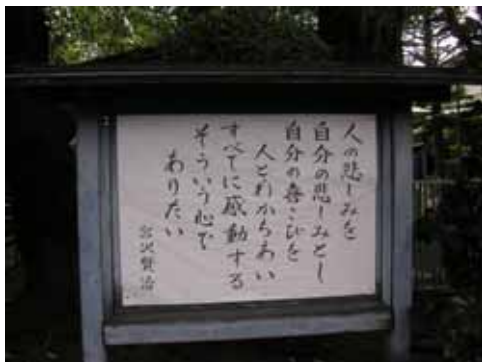 人の悲しみを
自分の悲しみとし
自分の喜こびを
人とわかちあい
すべてに感動する
そういう心で
ありたい
宮沢賢治